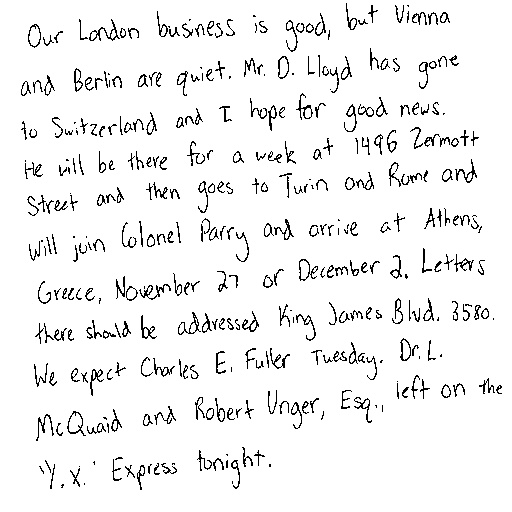 Our London business is good, but Vienna
and Berlin are quiet. Mr. D. Lloyd has gone
to Switzerland and I hope for good news.
He will be there for a week at 1496 Zermott
Street and then goes to Turin and Rome and
will join Colonel Parry and arrive at Athens,
Greece, November 27 or December 2. Letters
there should be addressed King James Blvd. 3580.
We expect Charles E. Fuller Tuesday. Dr. L.
McQuaid and Robert Unger, Esq., left on the
"Y.X.' Express tonight.